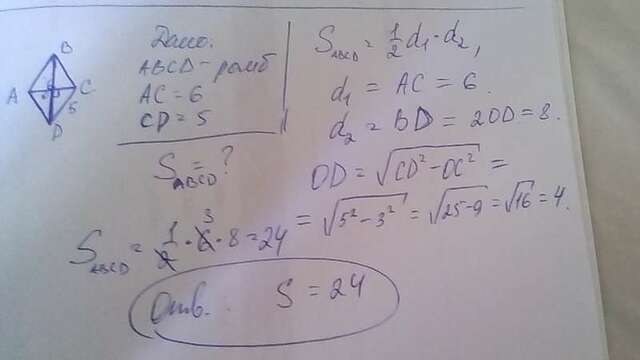 B
A
C
5
D
Дано:
ABCD - ромб
AC = 6
CD = 5
S_ABCD = ?
S_ABCD = 1/2 d₁ · d₂,
d₁ = AC = 6.
d₂ = BD = 2OD = 8.
OD = √(CD² - OC²) =
= √(5² - 3²) = √(25 - 9) = √16 = 4.
S_ABCD = 1/2 · 6 3 · 8 = 24
Отв.: S = 24